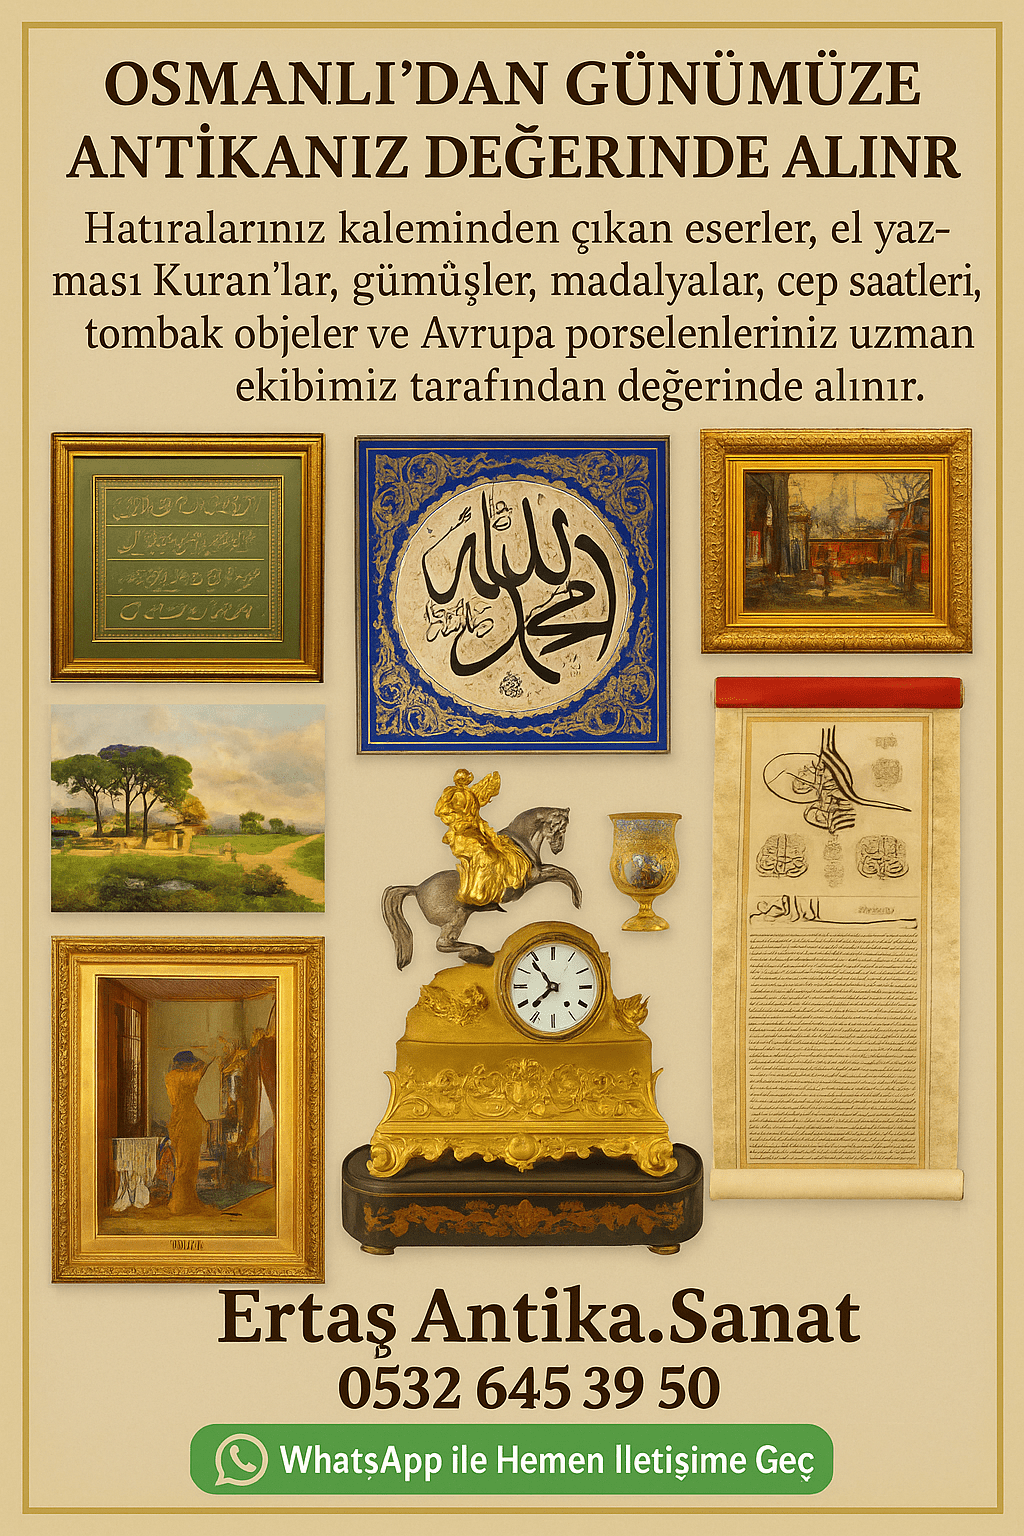 OSMANLI’DAN GÜNÜMÜZE
ANTİKANIZ DEĞERINDE ALINR
Hatıralarınız kaleminden çıkan eserler, el yaz-
ması Kuran’lar, gümüşler, madalyalar, cep saatleri,
tombak objeler ve Avrupa porselenleriniz uzman
ekibimiz tarafından değerinde alınır.
Ertaş Antika.Sanat
0532 645 39 50
WhatşApp ile Hemen Iletişime Geç